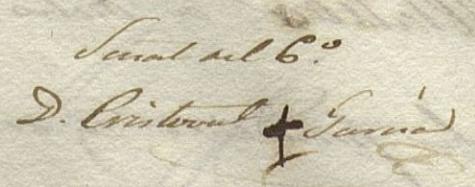 Señal del 6º
D. Cristoval + García